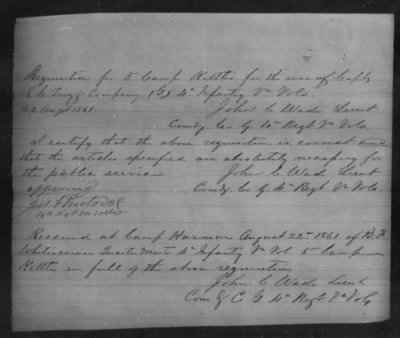 Requisition for 5 Camp Kettles for the use of Capt
R C Trigg Company (G) 4th Infantry Va Vols.
22 Augt 1861.
John C Wade Lieut
Comdg Co G 4th Regt Va Vols.
I certify that the above requisition is correct and
that the articles specified are absolutely necessary for
the public service
John C. Wade Lieut
approved
Comdg Co G 4th Regt Va Vols.
Jas F Preston Col
4th Regt Va Vols
Received at Camp Harmon August 22nd 1861 of
Quarter Mast 4th Infantry Va Vol 5 Camp
Kettles in full of the above requisition
John C Wade Lieut
Com G 4th Regt Va Vols